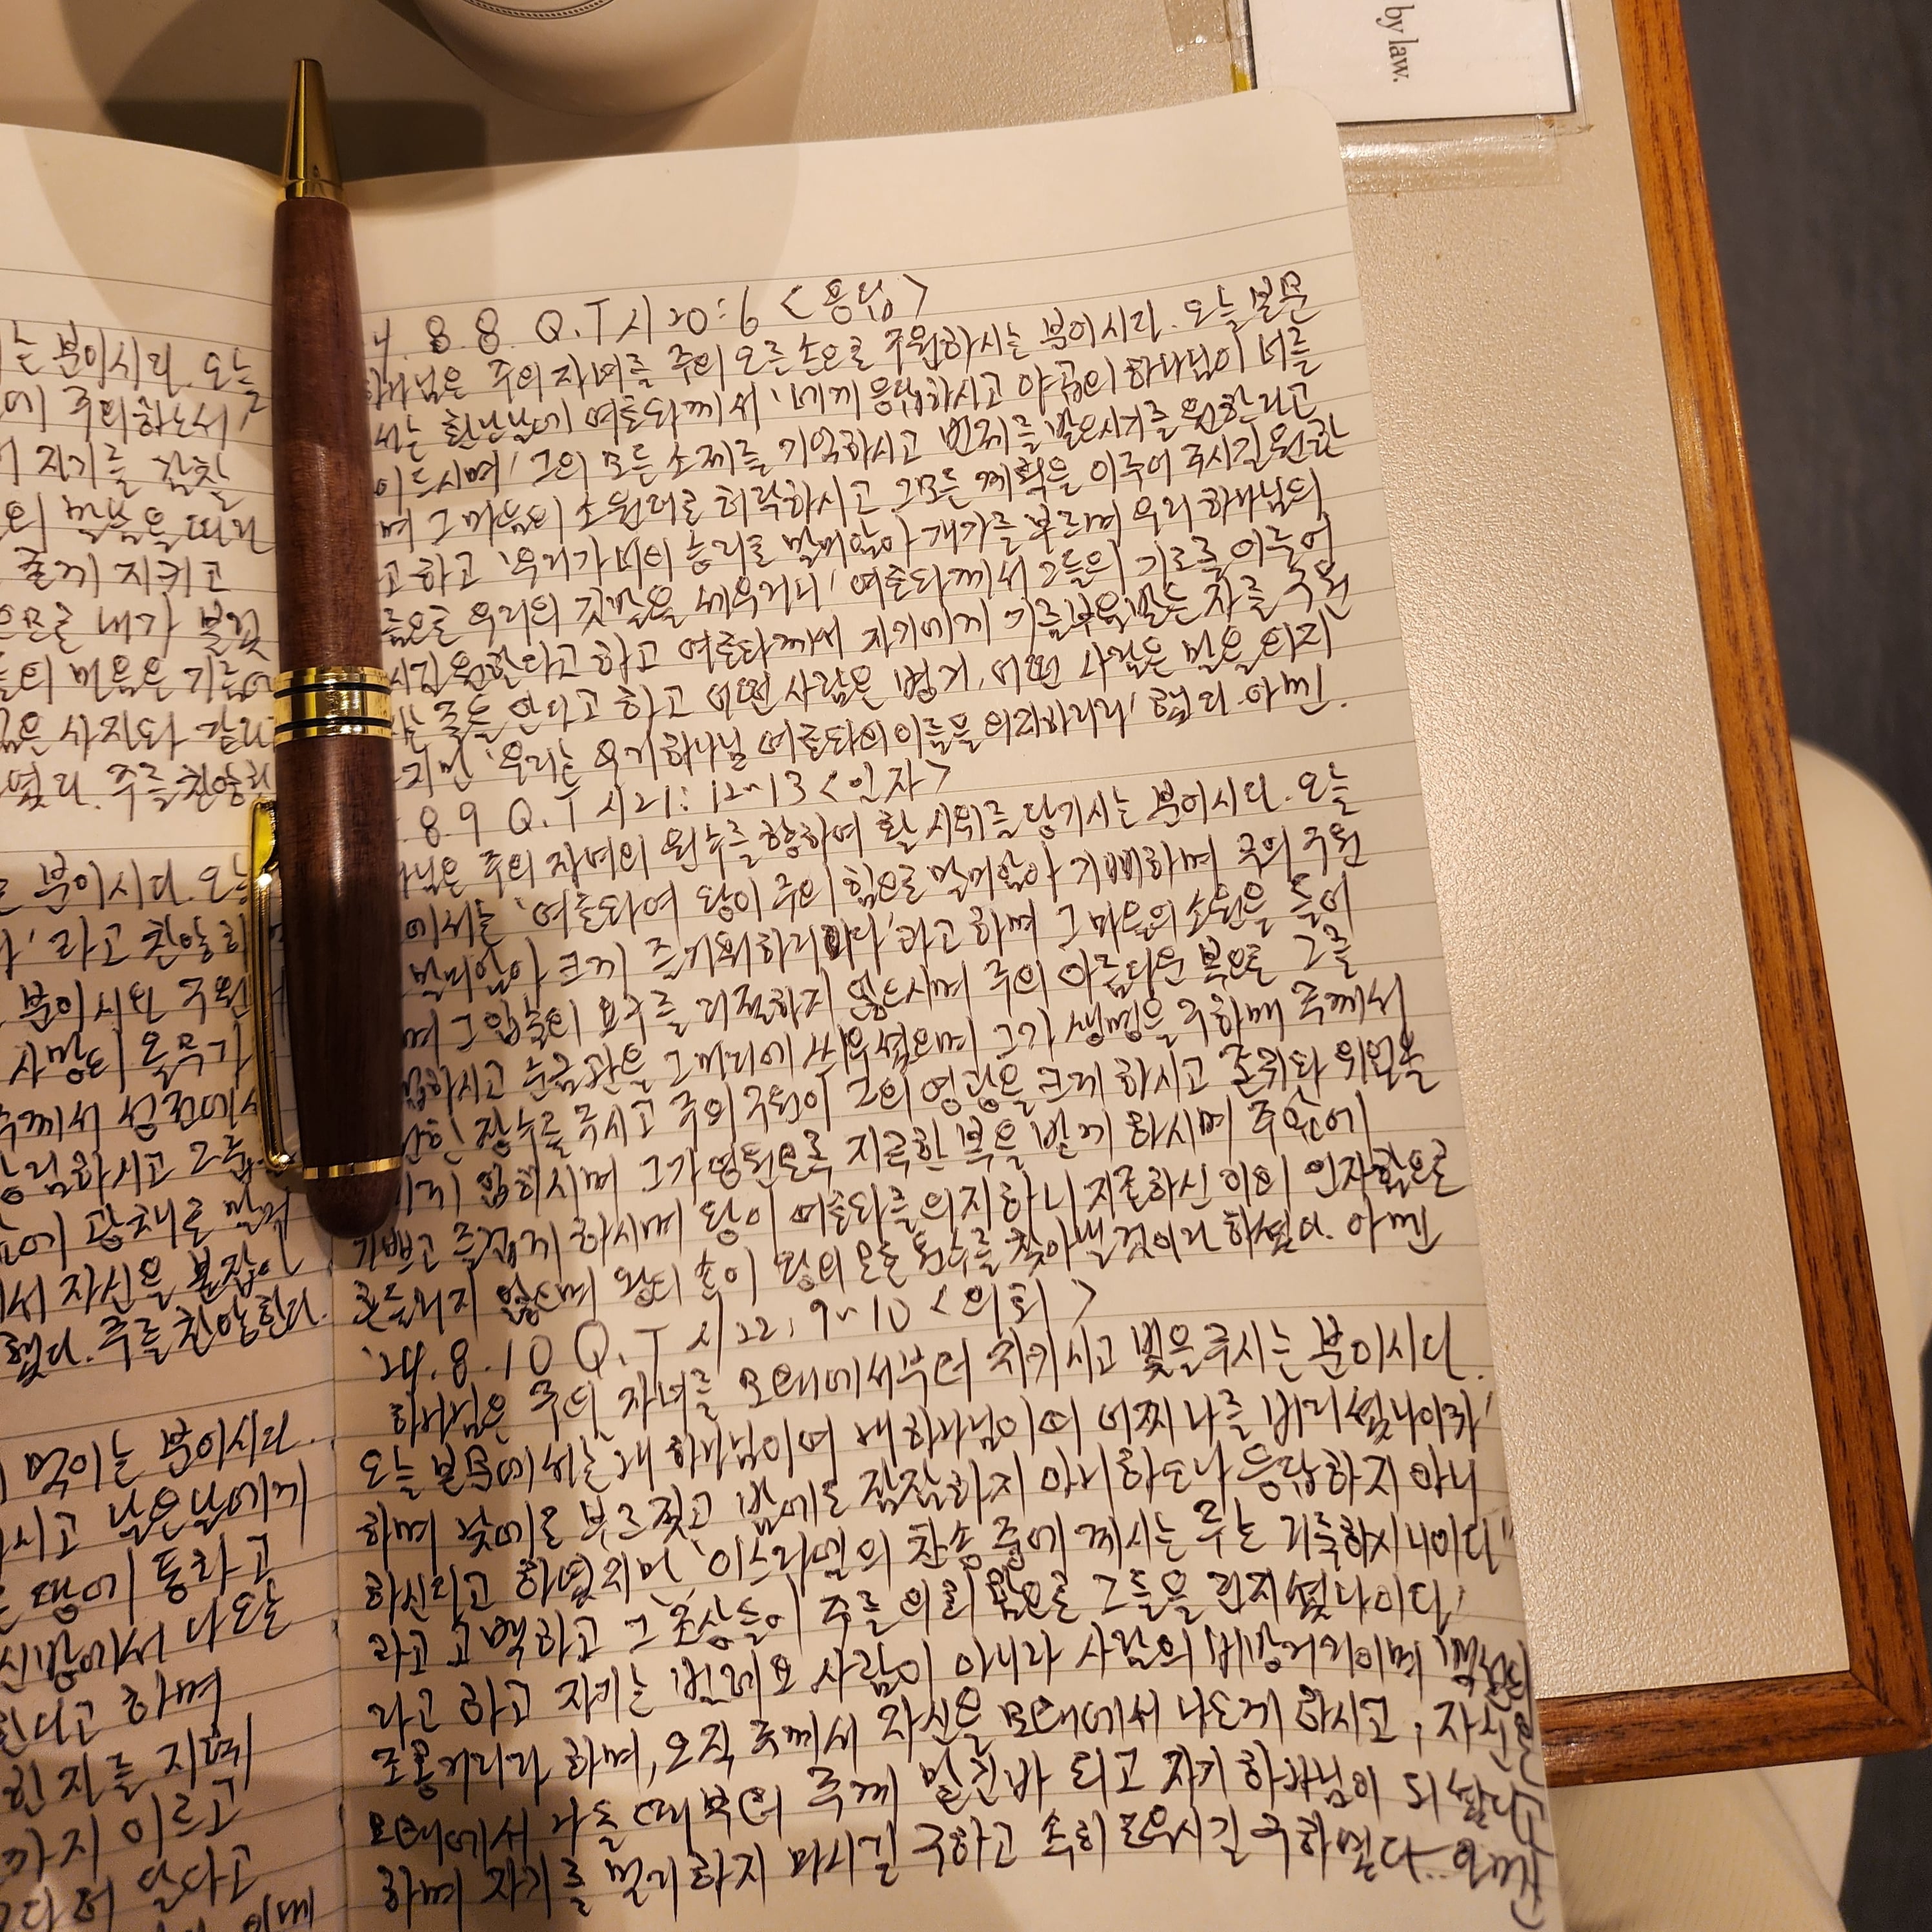 by law.
는 분이시다. 오늘
에 주의하는서
자기를 찰찰
의 말씀을 따라
줄께 지키고
으므로 내가 불렀
들의 배움은 기름에
은 사자와 같다
였다. 주를 찬양한
분이시다. 오늘
라고 찬양하
분이시며 구원
사망의 올무가
께서 성전에서
강림하시고 그를
에 광채로 말미
서 자신을 붙잡아
했다. 주를 찬양한다.
먹이는 분이시다.
시고 낮은 날에게
땅에 통하고
신방에서 나오는
한다고 하며
한 자를 지
까지 이르고
4. 8. 8. Q.T 시 20:6 <응답>
하나님은 주의 자녀를 주의 오른손으로 구원하시는 분이시다. 오늘 본문
서는 환난날에 여호와께서 '네게 응답하시고 야곱의 하나님이 너를
이드시며' 그의 모든 소제를 기억하시고 번제를 받으시기를 원한다고
며 그 마음의 소원대로 허락하시고 그 모든 계획을 이루어 주시길 원한
고 하고 '우리가 너의 승리로 말미암아 개가를 부르며 우리 하나님의
름으로 우리의 깃발을 세우리니' 여호와께서 그들의 기도를 이루어
시길 원한다고 하고 여호와께서 자기에게 기름부음 받은 자를 구원
는 줄을 안다고 하고 어떤 사람은 병거, 어떤 사람은 말을 의지
지만 '우리는 우리 하나님 여호와의 이름을 의지하리라' 했다. 아멘.
8. 9 Q.T 시 21:12~13 <인자>
나님은 주의 자녀의 원수를 향하여 활시위를 당기시는 분이시다. 오늘
에서는 '여호와여 왕이 주의 힘으로 말미암아 기뻐하며 주의 구원
말미암아 크게 즐거워하리이다'라고 하며 그 마음의 소원을 들어
며 그 입술의 요구를 거절하지 않으시며 주의 아름다운 복으로 그를
접하시고 순금관을 그 머리에 씌우셨으며 그가 생명을 구하매 주께서
한 장수를 주시고 주의 구원이 그의 영광을 크게 하시고 존귀와 위엄을
에게 입히시며 그가 영원토록 지극한 복을 받게 하시며 주앞에
기쁘고 즐겁게 하시며 왕이 여호와를 의지하니 지존하신 이의 인자함으로
흔들리지 않으며 왕의 손이 왕의 모든 원수를 찾아낼 것이라 하셨다. 아멘
'24. 8. 10 Q.T 시 22:9~10 <의뢰>
하나님은 주의 자녀를 모태에서부터 지키시고 빛을 주시는 분이시다.
오늘 본문에서는 '내 하나님이여 내 하나님이여 어찌 나를 버리셨나이까'
하며 낮에도 부르짖고 밤에도 잠잠하지 아니하오나 응답하지 아니
하신다고 하였지만 '이스라엘의 찬송 중에 계시는 주는 거룩하시니이다'
라고 고백하고 그 '조상들이 주를 의뢰함으로 그들을 건지셨나이다'
라고 하고 자기는 벌레요 사람이 아니라 사람의 비방거리이며 백성의
조롱거리라 하며, 오직 주께서 자신을 모태에서 나오게 하시고, 자신은
모태에서 나올 때부터 주께 맡긴바 되고 자기 하나님이 되셨다고
하며 자기를 멀리하지 마시길 구하고 속히 도우시길 구하였다. 아멘